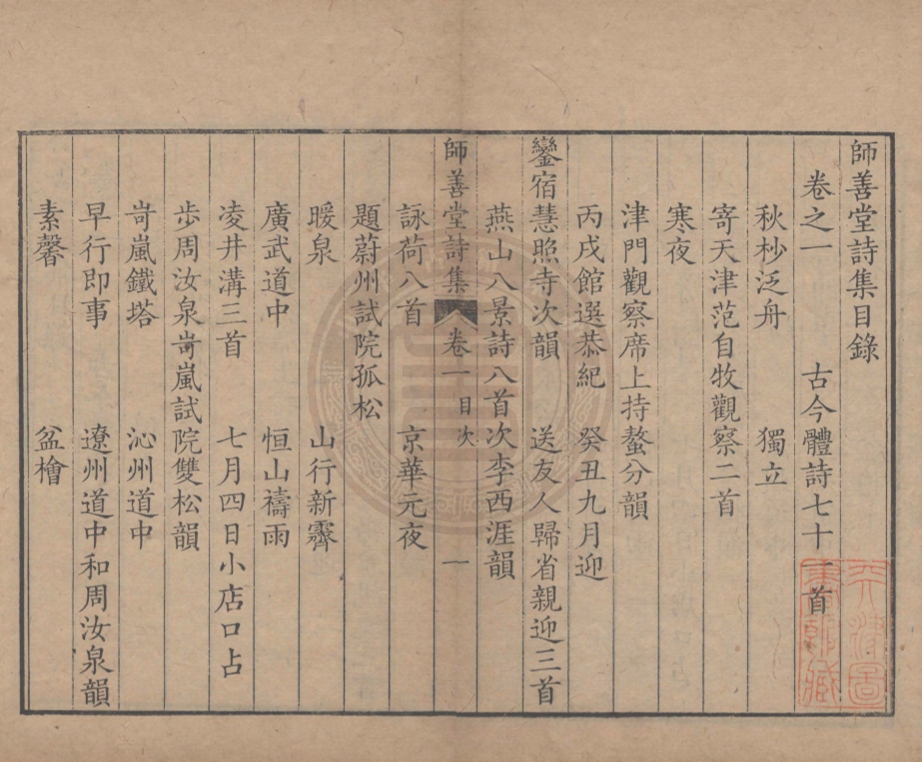 師善堂詩集目錄
卷之一 古今體詩七十一首
秋杪泛舟 獨立
寄天津范自牧觀察二首
寒夜
津門觀察席上持螯分韻
丙戌館選恭紀 癸丑九月迎
鑾宿慧照寺次韻 送友人歸省親迎三首
燕山八景詩八首次李西涯韻
師善堂詩集 卷一 目次 一
詠荷八首 京華元夜
題蔚州試院孤松
暖泉 山行新霽
廣武道中 恒山禱雨
凌井溝三首 七月四日小店口占
步周汝泉岢嵐試院雙松韻
岢嵐鐵塔 沁州道中
早行即事 遼州道中和周汝泉韻
素馨 盆檜